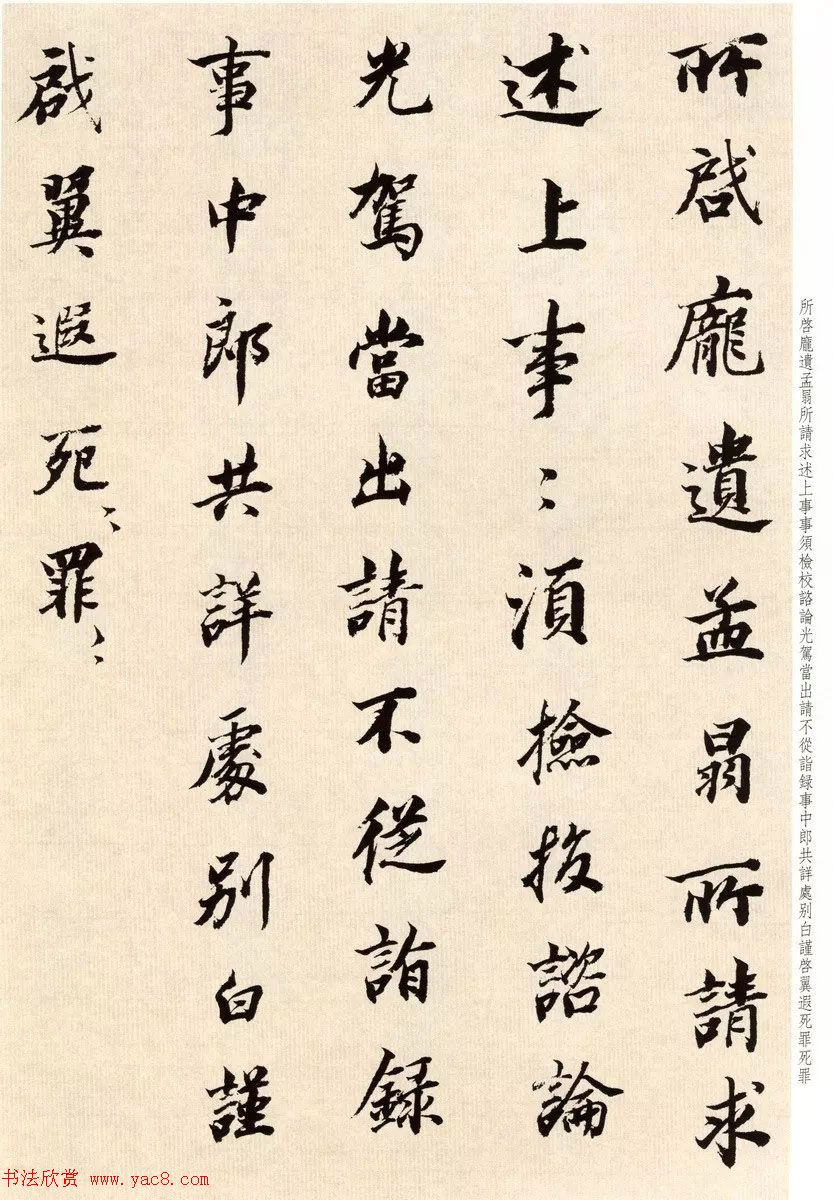 所啓龐遺孟曷所請求
述上事〻須撿校諮論
光駕當出請不從詣録
事中郎共詳處別白謹
啓翼遐死〻罪〻
所啓龐遺孟曷所請求述上事事須檢校諮論光駕當出請不從詣録事中郎共詳處别白謹啓翼遐死罪死罪
书法欣赏 www.yac8.com